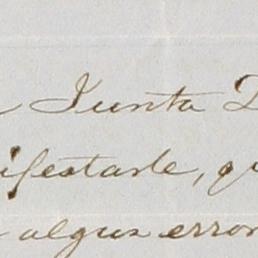 Junta
ifestarle, q
algun error